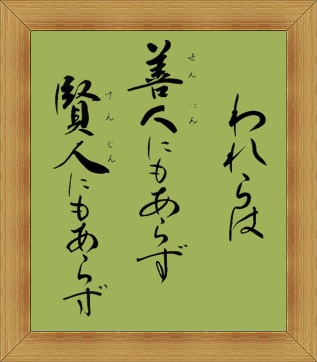 われらは
善人にもあらず
ぜんにん
賢人にもあらず
けんじん